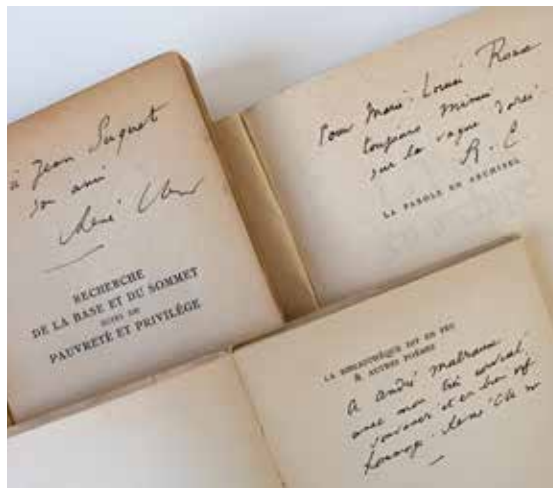 à Jean Suquet
son ami
René Char
RECHERCHE
DE LA BASE ET DU SOMMET
SUIVI DE
PAUVRETÉ ET PRIVILÈGE
Pour Marie-Louise
toujours
sur la vague
R. C
LA PAROLE EN ARCHIPEL
LA BIBLIOTHÈQUE EST EN FEU
& AUTRES POÈMES
A andré malraux
avec mon très cordial
souvenir et en
hommage. René Char